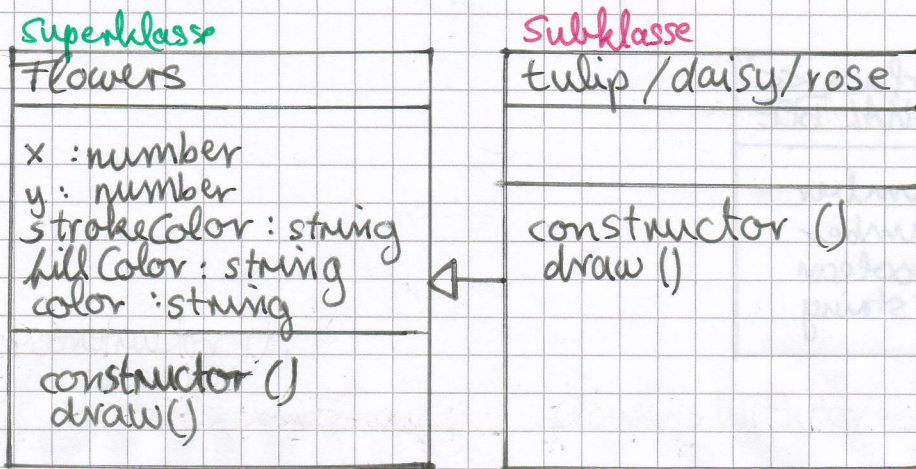 Superklasse
Flowers
x : number
y : number
strokeColor : string
fillColor : string
color : string
constructor ()
draw()
Subklasse
tulip / daisy / rose
constructor ()
draw ()